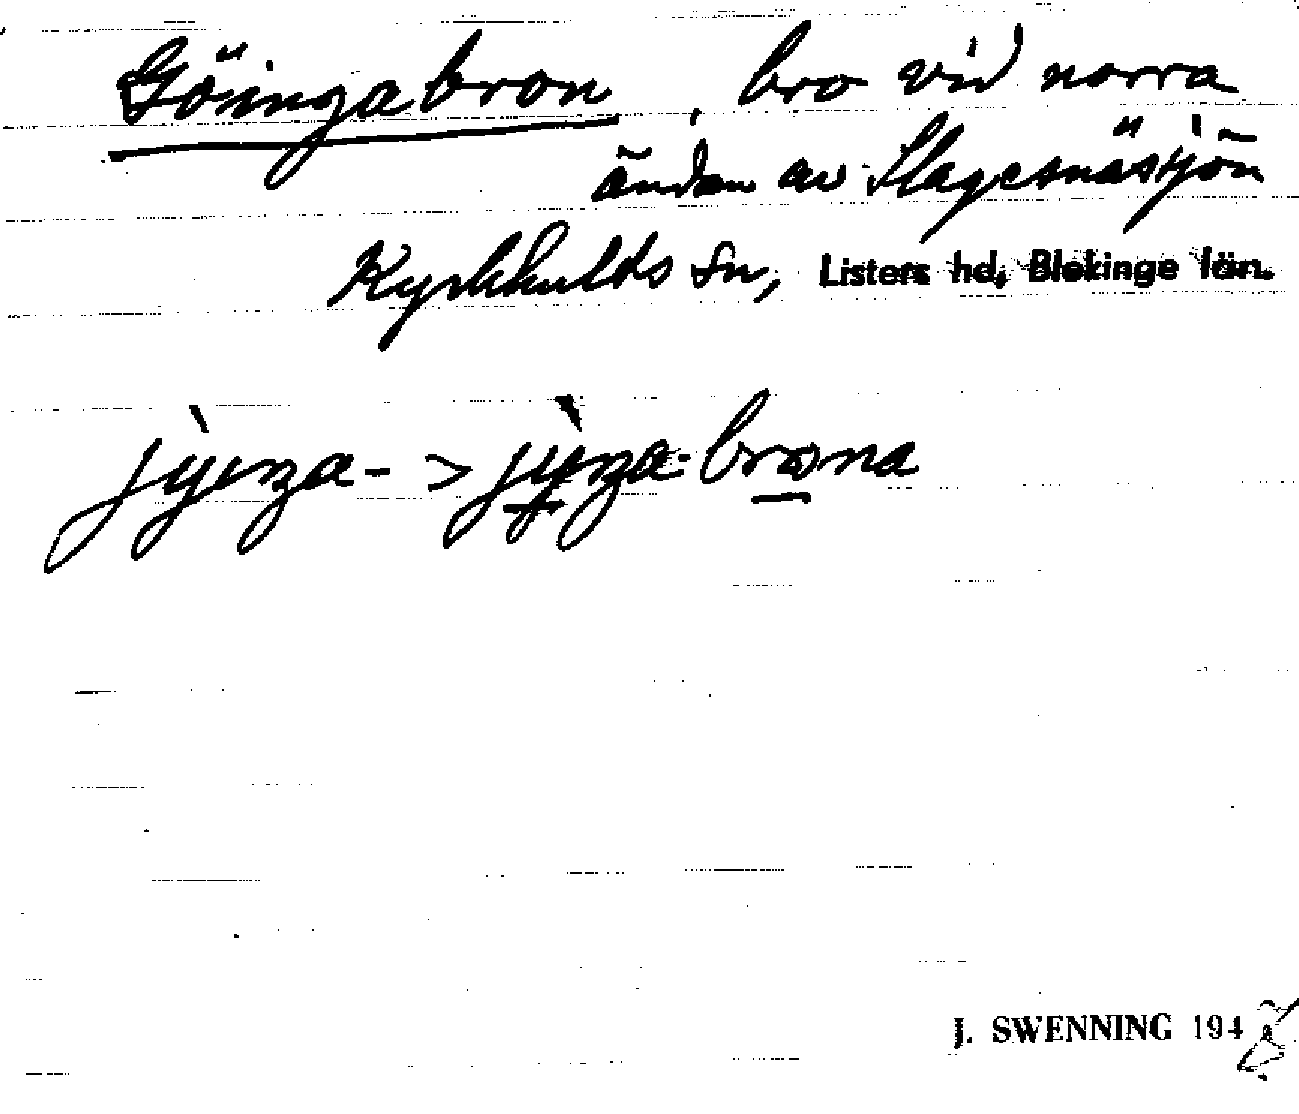 Göingabron, bro vid norra
ändan av Slagesnässjön
Kyrkhults sn, Listers hd, Blekinge län.
J. SWENNING 194